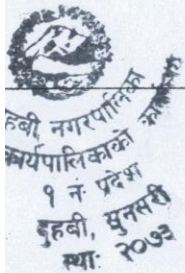 दुहवी, नगरपालिका
कार्यपालिकाको कार्यालय
१ नं. प्रदेश
दुहवी, सुनसरी
स्था: २०७३